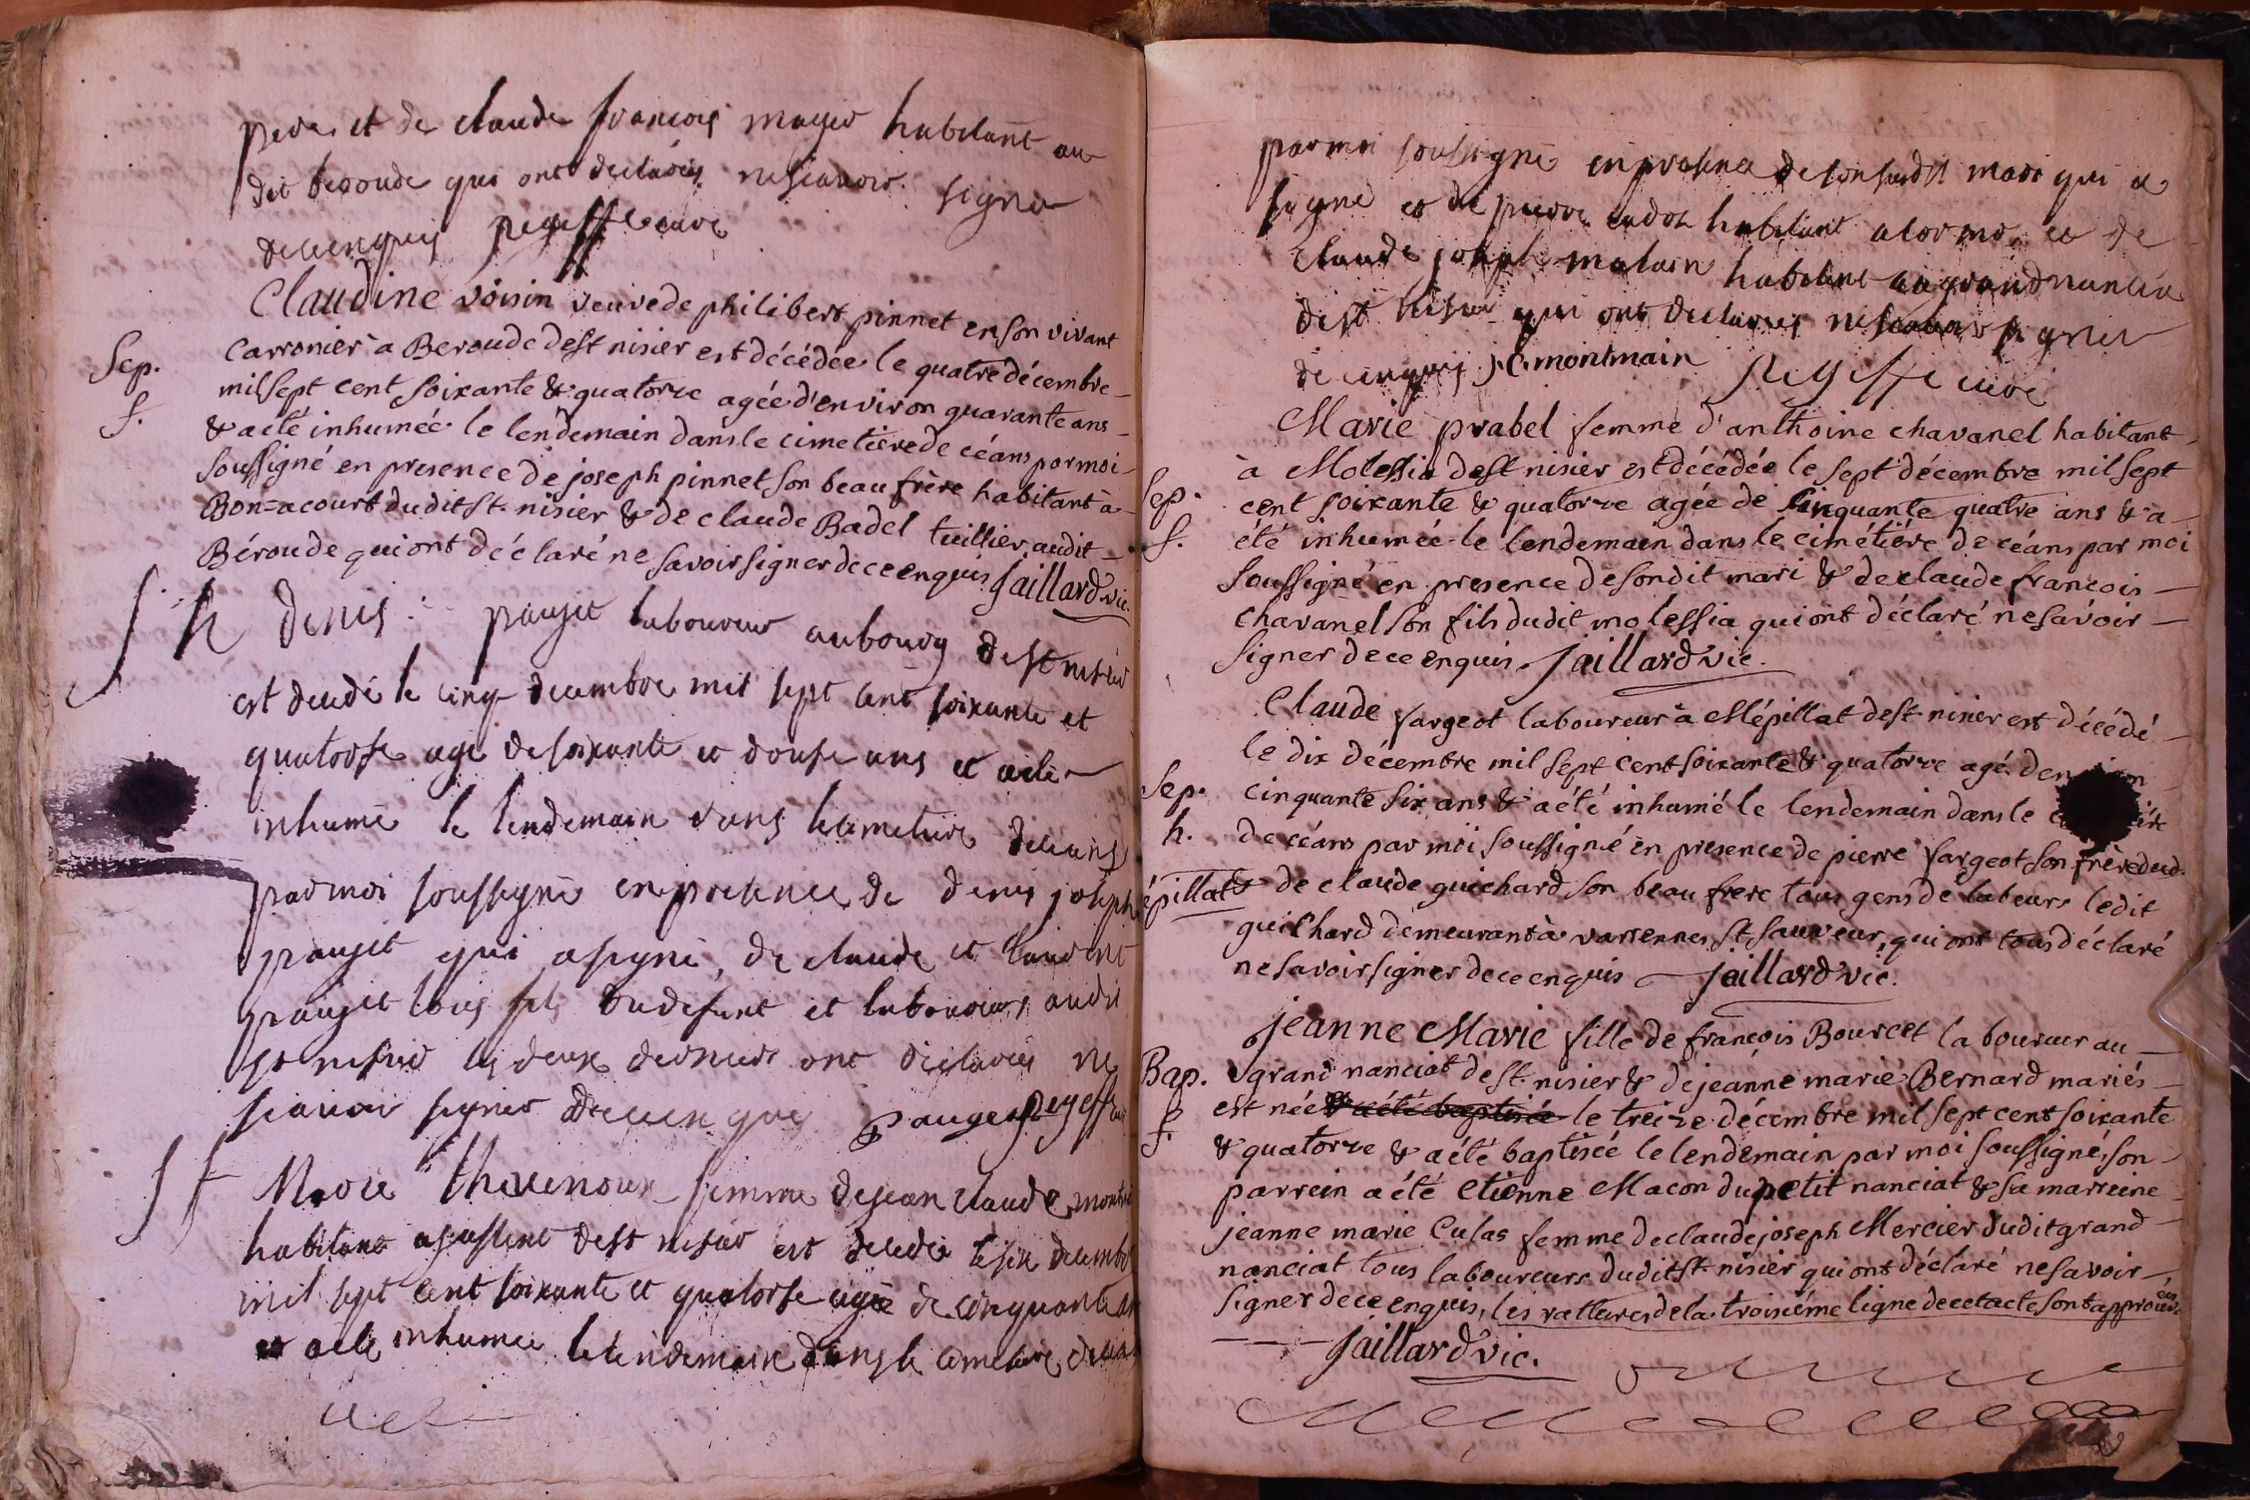 pere et de claude francois mayer habitant au
dit beroude qui ont declarés ne scavoir signer
de ce enquis pegeffe curé
Claudine voisin veuve de philibert pinnet en son vivant
Sep. Carronier à Beroude de st nisier est décédée le quatre décembre
f. mil sept cent soixante & quatorze agée d'environ quarante ans
& a été inhumée le lendemain dans le cimetière de céans par moi
soussigné en presence de joseph pinnet son beau frère habitant à
Bon=acourt dudit st. nisier & de claude Badel tuillier audit
Béroude qui ont déclaré ne savoir signer de ce enquis jaillard vic.
S h denis pauget laboureur au bourg de st nisier
est decedé le cinq decembre mil sept cent soixante et
quatorse agé de soixante et douse ans et a eté
inhumé le lendemain dans le cimetiere de ceans
par moi soussigné en presence de denis joseph
pauget qui a signé, de claude et laurent
pauget tous fils du defunt et laboureurs audit
st nisier les deux derniers ont declarés ne
scavoir signer de ce enquis pauget pegeffe curé
S f Marie thevenoux femme de jean claude
habitant a de st nisier est decedée le six decembre
mil sept cent soixante et quatorse agée de cinquante ans
et a eté inhumée le lendemain dans le cimetiere de ceans
par moi soussigné en presence de son susdit mari qui a
signé et de pierre cadot habitant a cormo, et de
claude joseph habitant au grand nancia
de st nisier qui ont declarés ne scavoir signer
de ce enquis j.c. montmain pegeffe curé
Marie prabel femme d'anthoine chavanel habitant
à Molessia de st nisier est décédée le sept décembre mil sept
Sep. cent soixante & quatorze agée de cinquante quatre ans & a
f. été inhumée le lendemain dans le cimétière de céans par moi
soussigné en presence de son dit mari & de claude francois
chavanel son fils dudit molessia qui ont déclaré ne savoir
signer de ce enquis. jaillard vic.
Claude fargeot laboureur à Mépillat de st nisier est décédé
le dix décembre mil sept cent soixante & quatorze agé d'environ
Sep. cinquante six ans & a été inhumé le lendemain dans le
h. de céans par moi soussigné en presence de pierre fargeot son frère dud.
épillat & de claude guichard son beau frere tous gens de labeurs ledit
guichard demeurant à varrennes st sauveur, qui ont tous déclaré
ne savoir signer de ce enquis jaillard vic.
jeanne Marie fille de françois Bourcet laboureur au
Bap. grand nanciat de st. nisier & de jeanne marie Bernard mariés
f. est née & a été baptisée le treize décembre mil sept cent soixante
& quatorze & a été baptisée le lendemain par moi soussigné, son
parrein a été etienne Macon du petit nanciat & sa marreine
jeanne marie Culas femme de claude joseph Mercier dudit grand
nanciat tous laboureurs dudit st. nisier qui ont déclaré ne savoir
signer de ce enquis, les ratteures de la troisième ligne de cet acte sont approuvées
jaillard vic.